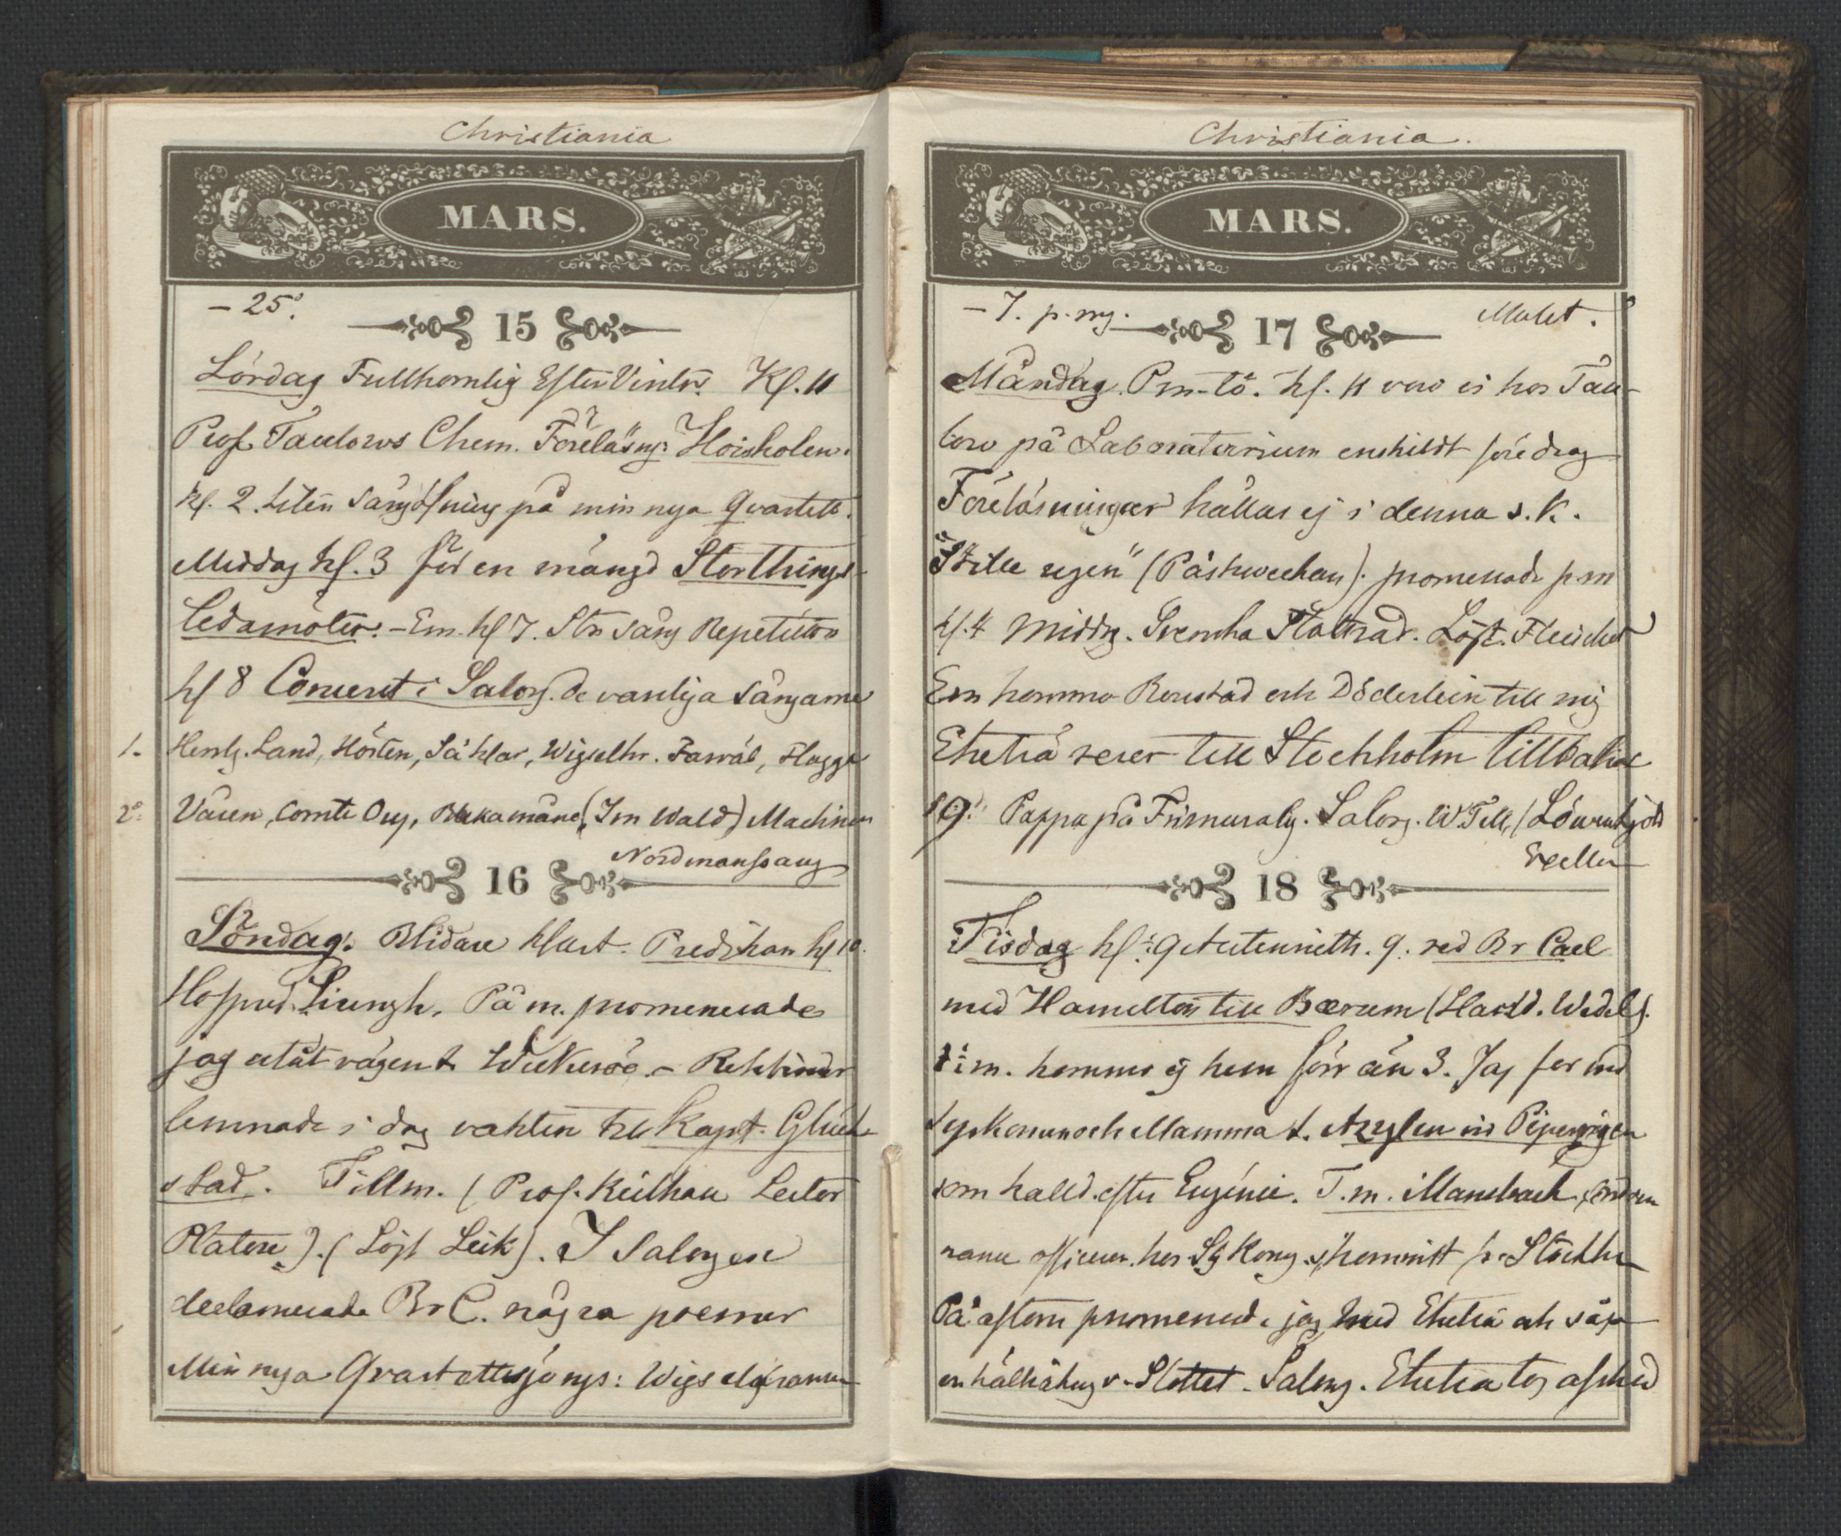 Christiania
MARS.
– 25°.
15
Lördag Fullkomlig Efter Vinter. Kl. 11
Prof. Taulows Chem. Föreläsng: Hoiskolen.
kl. 2. liten sångöfning på min nya Qvartett.
Middag kl. 3 för en mängd Storthings-
ledamöter. – Em. kl 7. Stor sång Repetition
kl 8 Concert i Salong. de vanliga sångarne
1. Herrlg. Land, Hösten, Så klar, Wigselhr. Farväl, Flagga
2° Våren, Comte Ory, (Im Wald) Machinen
Nordmanssang
16
Söndag. Blidare klart. Predikan kl 10.
Hofpred. Liungh. På m. promenerade
jag utåt vägen t.
lemnade i dag vakten till Kapt. Glück-
stad. Till m. (Prof. Keilhau Lector
). (Löjt Leik). I salongen
declamerade Br C. några poemer
Min nya Qvartettsjöngs: Wigselgranen
Christiania.
MARS.
– 7. p. mg.
Mulet.
17
Måndag. Pm-tö. kl. 11 var ej hos Tau-
low på Laboratorium enskildt föredrag
Föreläsningar hållas ej i denna s. k.
"Stille ugen" (Påskveckan). promenade p m
kl. 4 Middg. Svenska Statsrad. Löjt. Fleischer
Em kommo Boustad och Döderlein till mig
Eketrä reser till Stockholm tillbaka
19. Pappa på Frimuralg. Salong. (Löwenskjöld
18
Tisdag kl. 9 red Br Carl
med Hamilton till Bærum (Har. Wedels).
t. m. kommer ej hem förr än 3. Jag for med
Syskonen och Mamma t. Azylen vid Pipervigen
som kalld. efter Eugénie. T. m. Mansbach,
officerer. hos Kong.
På aftonen promenerade jag med Eketrä och såg
en kälkåkng v. Slottet. Salong. Eketrä tog afsked